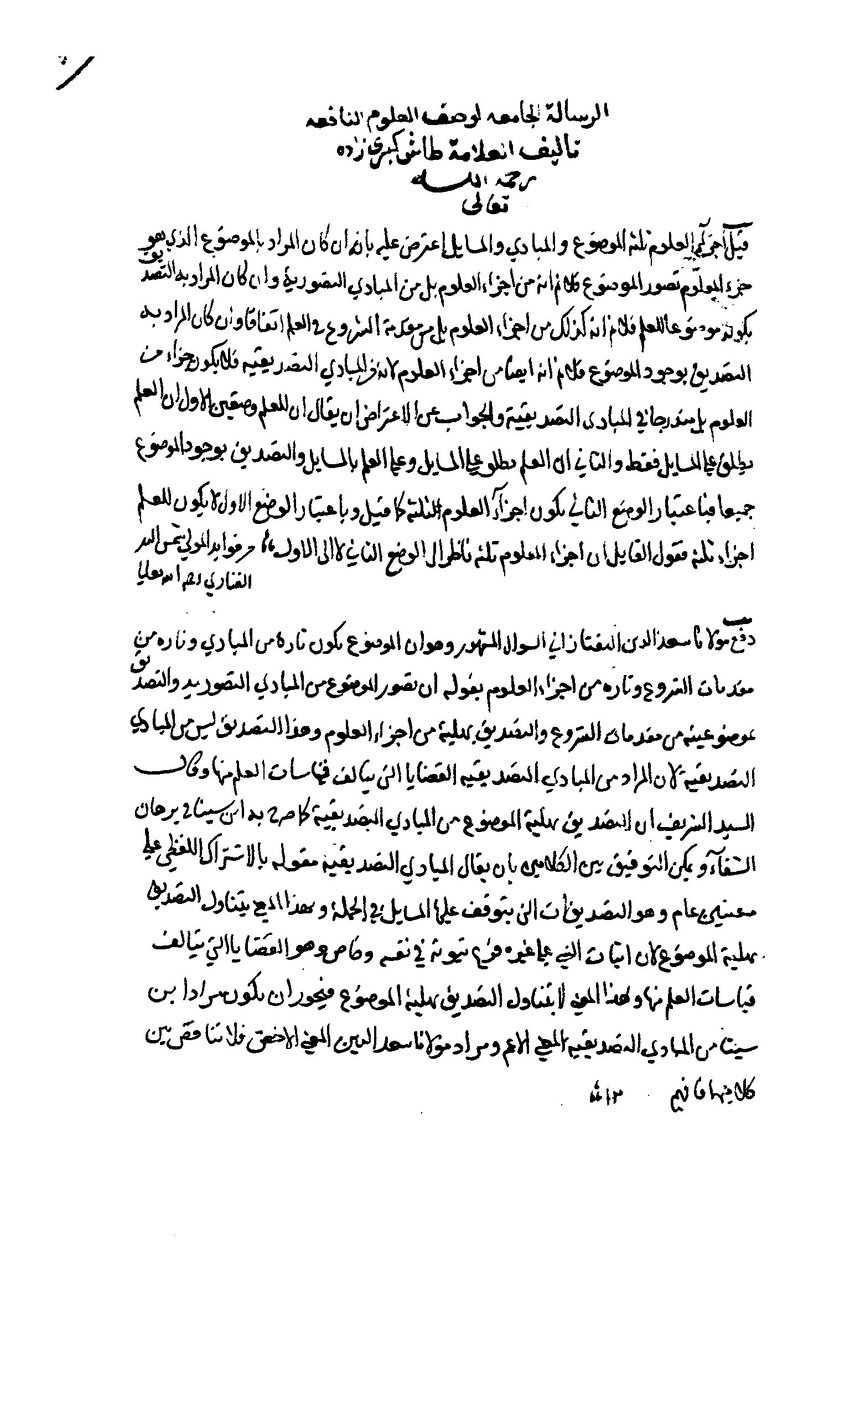 الرسالة الجامعه لوصف العلوم النافعه
تاليف العلامة طاش كبرى زاده
رحمه الله
تعالى
قيل أجزاء العلوم ثلثة الموضوع والمبادي والمسايل إعترض عليه بانه ان كان المراد بالموضوع الذي هو
جزء العلوم تصور الموضوع فلا نم انه من اجزاء العلوم بل من المبادي التصورية وان كان المراد به التصديق
بكونه موضوعا للعلم فلا نم انه كذلك من اجزاء العلوم بل من مقدمة الشروع في العلم اتفاقا وان كان المراد به
التصديق بوجود الموضوع فلا نم انه ايضا من اجزاء العلوم لانه من المبادي التصديقيه فلا يكون جزاء من
العلوم بل مندرجا في المبادى التصديقية والجواب عن الاعتراض ان يقال ان للعلم وضعين الاول ان العلم
يطلق على المسايل فقط والثاني ان العلم يطلق على المسايل وعلى العلم بالمسايل والتصديق بوجود الموضوع
جميعا فباعتبار الوضع الثاني يكون اجزاء العلوم الثلثة كما قيل وباعتبار الوضع الاول لا يكون للعلم
اجزاء ثلثه فقول القايل ان اجزاء العلوم ثلثه ناظر الى الوضع الثاني لا الى الاول من فوايد المولى شمس الدين
الفناري
دفع مولانا سعد الدين التفتازاني السوال المشهور وهو ان الموضوع يكون تارة من المبادي وتارة من
مقدمات الشروع وتارة من اجزاء العلوم بقوله ان تصور الموضوع من المبادي التصوريه والتصديق
بموضوعيته من مقدمات الشروع والتصديق بهلية من اجزاء العلوم وهذا التصديق ليس من المبادي
التصديقية لان المراد من المبادي التصديقيه القضايا التي يتالف قياسات العلم منها وقال
السيد الشريف ان التصديق بهلية الموضوع من المبادي التصديقية كما صرح به ابن سينا في برهان
الشفآء ويمكن التوفيق بين الكلامين بان يقال المبادي التصديقيه مقوله بالاشتراك اللفظي على
معنيين عام وهو التصديقات التي يتوقف عليها المسايل في الجملة وبهذا المعنى يتناول التصديق
بهلية الموضوع لان اثبات الشي على غيره فرع ثبوته في نفسه وخاص وهو القضايا التي يتالف
قياسات العلم منها وبهذا المعنى لا يتناول التصديق بهلية الموضوع فيجوز ان يكون مراد ابن
سينا من المبادي التصديقيه المعنى الاعم ومراد مولانا سعد الدين المعنى الاخص فلا تناقض بين
كلاميهما فافهم